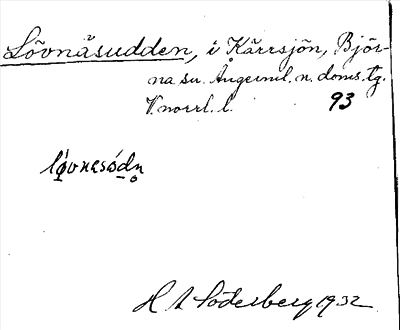 Lövnäsudden, i Kärrsjön, Björ-
na sn. Ångerml. n. doms. tg.
V.norrl. l. 93
lövnesódn
H A Söderberg 1932